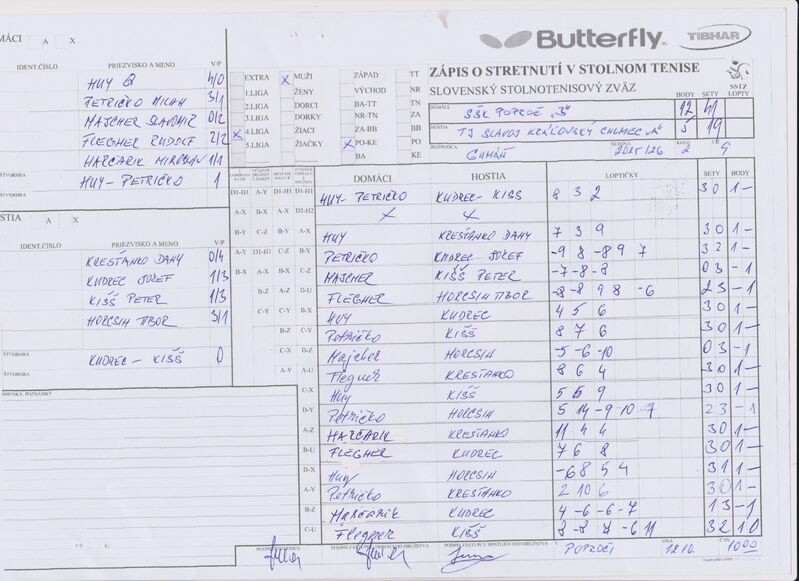 Butterfly TIBHAR
ZÁPIS O STRETNUTÍ V STOLNOM TENISE
SLOVENSKÝ STOLNOTENISOVÝ ZVÄZ
SSTZ
BODY SETY LOPTY
DOMÁCI SŠK POPROČ „B“ 12 41
HOSTIA TJ SLAVOJ KRÁĽOVSKÝ CHLMEC „A“ 5 19
ROZHODCA GUMÁŇ SEZÓNA 2025/26 KOLO 2 Č. 9
EXTRA X MUŽI ZÁPAD TT
1.LIGA ŽENY VÝCHOD NR
2.LIGA DORCI BA-TT TN
3.LIGA DORKY NR-TN ZA
X 4.LIGA ŽIACI ZA-BB BB
5.LIGA ŽIAČKY X PO-KE PO
BA KE
MÁCI A X
IDENT.ČÍSLO PRIEZVISKO A MENO V/P
HUY Q 4/0
PETRIČKO MILAN 3/1
MAJCHER SLAVOMÍR 0/2
FLEGNER RUDOLF 2/2
HARČARIK MIROSLAV 1/1
ŠTVORHRA
HUY-PETRIČKO 1
STIA A X
IDENT.ČÍSLO PRIEZVISKO A MENO V/P
KRESŤANKO DANY 0/4
KUDREC JOZEF 1/3
KIŠŠ PETER 1/3
HORCSIN TIBOR 3/1
ŠTVORHRA
KUDREC-KIŠŠ 0
ŠTVORHRA
MIENKY, POZNÁMKY
DOMÁCI HOSTIA LOPTIČKY SETY BODY
D1-H1 A-Y D1-H1 D1-H1 HUY-PETRIČKO KUDREC-KISS 8 3 2 3 0 1-
A-X B-X A-X D2-H2 X X
B-Y C-Z B-Y A-X HUY KRESŤANKO DANY 7 3 9 3 0 1-
A-Y D1-H1 C-Z B-Y PETRIČKO KUDREC JOZEF -9 8 -8 9 7 3 2 1-
B-X A-X B-X C-Z MAJCHER KIŠŠ PETER -7 -8 -8 0 3 -1
B-Z A-Z D-U FLEGNER HORCSIN TIBOR -8 -8 9 8 -6 2 3 -1
C-Y C-Y B-X HUY KUDREC 4 5 6 3 0 1-
B-Z C-Y Petričko KIŠŠ 8 7 6 3 0 1-
C-X D-Z Majcher HORCSIN -5 -6 -10 0 3 -1
A-Y A-U Flegner KRESŤANKO 8 6 4 3 0 1-
C-X HUY KIŠŠ 5 6 9 3 0 1-
D-Y Petričko HORCSIN 5 14 -9 -10 -7 2 3 -1
A-Z HARČARIK KRESŤANKO 11 4 4 3 0 1-
B-U FLEGNER KUDREC 7 6 8 3 0 1-
D-X Huy HORCSIN -6 8 5 4 3 1 1-
A-Y Petričko KRESŤANKO 2 10 6 3 0 1-
B-Z Harčarik KUDREC 4 -6 -6 -7 1 3 -1
C-U Flegner KIŠŠ 8 -8 7 -6 11 3 2 1 0
PODPIS ROZHODCU PODPIS ZÁSTUPCU DOMÁCEHO DRUŽSTVA PODPIS ZÁSTUPCU HOSŤUJÚCEHO DRUŽSTVA V POPROČI DŇA 12.10. ČAS 10:00